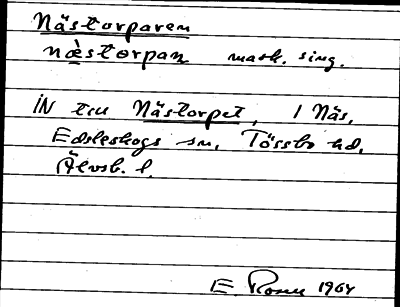 Nästorparen
næ̀storpan mask. sing.
IN till Nästorpet, i Näs,
Edsleskogs sn, Tössbo hd,
Älvsb. l.
E Rosen 1964